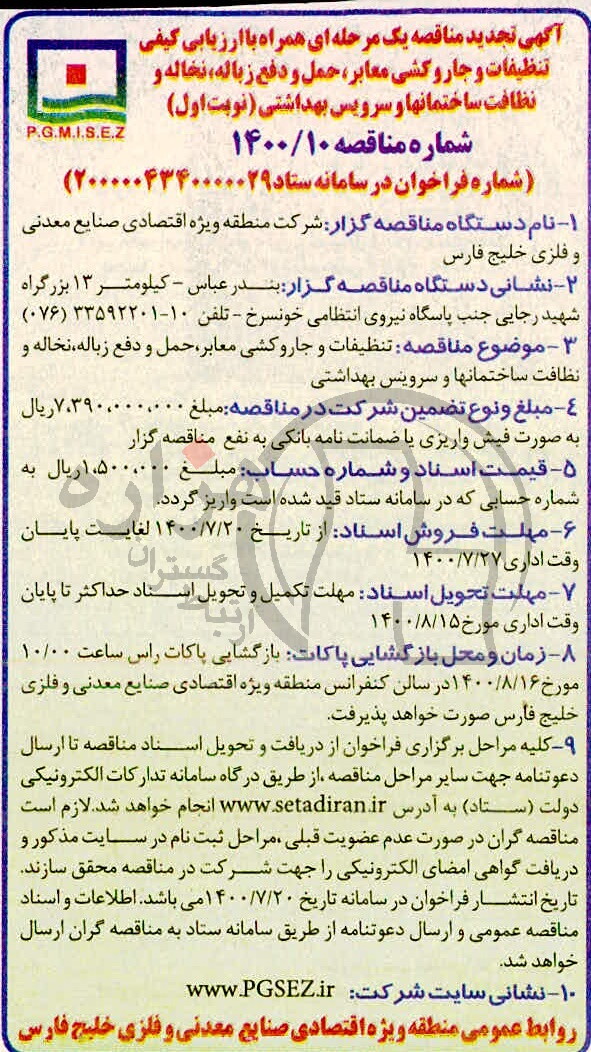 آگهی تجدید مناقصه یک مرحله ای همراه با ارزیابی کیفی
تنظیفات و جاروکشی معابر، حمل و دفع زباله، نخاله و
نظافت ساختمانها و سرویس بهداشتی (نوبت اول)
P.G.M.I.S.E.Z
شماره مناقصه ۱۴۰۰/۱۰
(شماره فراخوان در سامانه ستاد ۲۰۰۰۰۰۴۳۴۰۰۰۰۰۲۹)
۱-نام دستگاه مناقصه گزار: شرکت منطقه ویژه اقتصادی صنایع معدنی
و فلزی خلیج فارس
۲-نشانی دستگاه مناقصه گزار: بندر عباس - کیلومتر ۱۳ بزرگراه
شهید رجایی جنب پاسگاه نیروی انتظامی خونسرخ - تلفن ۱۰-۳۳۵۹۲۲۰۱ (۰۷۶)
۳-موضوع مناقصه: تنظیفات و جاروکشی معابر،حمل و دفع زباله،نخاله و
نظافت ساختمانها و سرویس بهداشتی
۴-مبلغ ونوع تضمین شرکت در مناقصه: مبلغ ۷،۳۹۰،۰۰۰،۰۰۰ریال
به صورت فیش واریزی یا ضمانت نامه بانکی به نفع مناقصه گزار
۵-قیمت اسناد و شماره حساب: مبلغ ۱،۵۰۰،۰۰۰ریال به
شماره حسابی که در سامانه ستاد قید شده است واریز گردد.
۶-مهلت فروش اسناد: از تاریخ ۱۴۰۰/۷/۲۰ لغایت پایان
وقت اداری ۱۴۰۰/۷/۲۷
۷-مهلت تحویل اسناد: مهلت تکمیل و تحویل اسناد حداکثر تا پایان
وقت اداری مورخ ۱۴۰۰/۸/۱۵
۸-زمان و محل بازگشایی پاکات: بازگشایی پاکات راس ساعت ۱۰/۰۰
مورخ ۱۴۰۰/۸/۱۶در سالن کنفرانس منطقه ویژه اقتصادی صنایع معدنی و فلزی
خلیج فارس صورت خواهد پذیرفت.
۹-کلیه مراحل برگزاری فراخوان از دریافت و تحویل اسناد مناقصه تا ارسال
دعوتنامه جهت سایر مراحل مناقصه ،از طریق درگاه سامانه تدارکات الکترونیکی
دولت (ستاد) به آدرس www.setadiran.ir انجام خواهد شد.لازم است
مناقصه گران در صورت عدم عضویت قبلی ،مراحل ثبت نام در سایت مذکور و
دریافت گواهی امضای الکترونیکی را جهت شرکت در مناقصه محقق سازند.
تاریخ انتشار فراخوان در سامانه تاریخ ۱۴۰۰/۷/۲۰می باشد. اطلاعات و اسناد
مناقصه عمومی و ارسال دعوتنامه از طریق سامانه ستاد به مناقصه گران ارسال
خواهد شد.
۱۰-نشانی سایت شرکت: www.PGSEZ.ir
روابط عمومی منطقه ویژه اقتصادی صنایع معدنی و فلزی خلیج فارس
هزاره
گستران
ارتباط